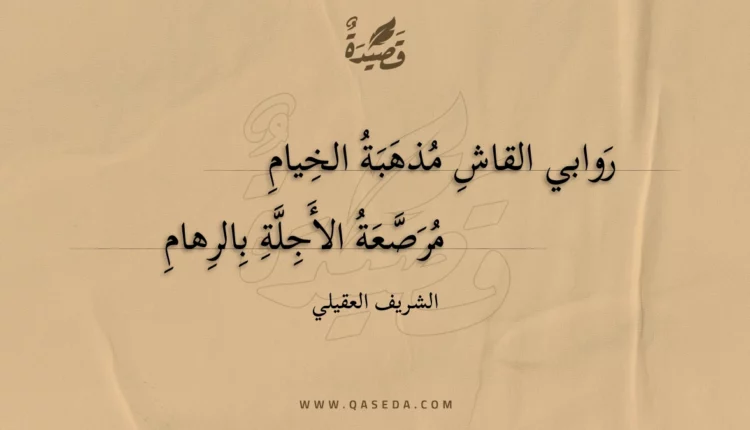 قَصِيدَةٌ
رَوابي القاشِ مُذهَبَةُ الخِيامِ
مُرَصَّعَةُ الأَجِلَّةِ بِالرِهامِ
الشريف العقيلي
WWW.QASEDA.COM